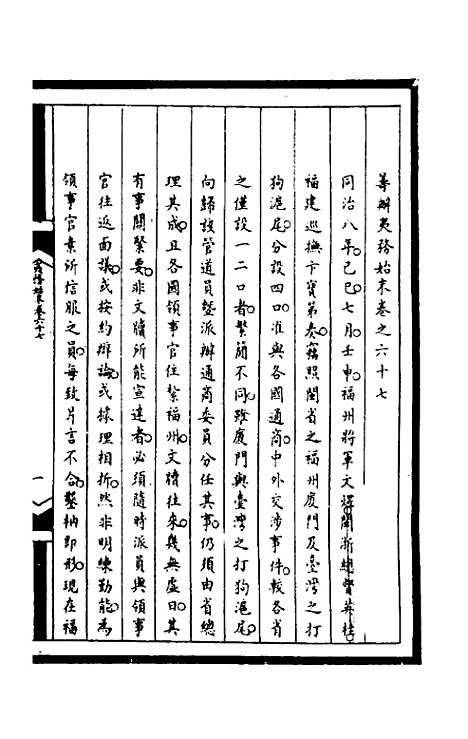 籌辦夷務始末卷之六十七
同治八年己巳七月壬申福州將軍文煜閩浙總督英桂
福建巡撫卞寶第奏竊照閩省之福州廈門及臺灣之打
狗滬尾分設四口准與各國通商中外交涉事件較各省
之僅設一二口者繁簡不同雖廈門與臺灣之打狗滬尾
向歸該管道員暨派辦通商委員分任其事仍須由省總
理其成且各國領事官住紮福州文牘往來幾無虛日其
有事關緊要非文牘所能宣達者必須隨時派員與領事
官往返面議或按約辯論或據理相折然非明練勤能為
領事官素所信服之員每致片言不合鑿枘即形現在福
卷六十七
一